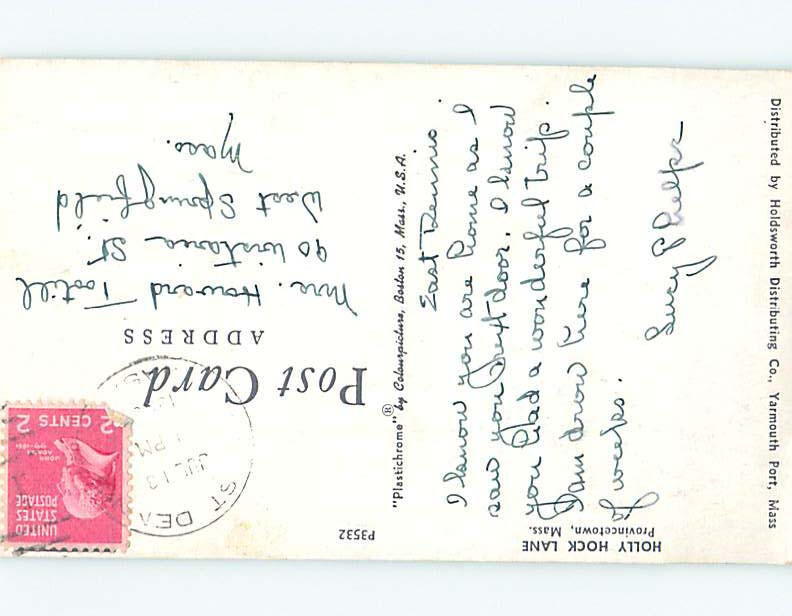 HOLLY HOCK LANE
Provincetown, Mass.
P3532
East Dennis.
I know you are home as I
saw you next door. I know
you had a wonderful trip.
I am down here for a couple
of weeks.
Lucy Phelps
"Plastichrome" ® by Colourpicture, Boston 15, Mass., U.S.A.
Distributed by Holdsworth Distributing Co., Yarmouth Port, Mass
Post Card
ADDRESS
Mrs. Howard Tootill
90 Wistaria St.
West Springfield
Mass.
UNITED
STATES
POSTAGE
JOHN
ADAMS
2 CENTS 2
ST DE
JUL 13
PM